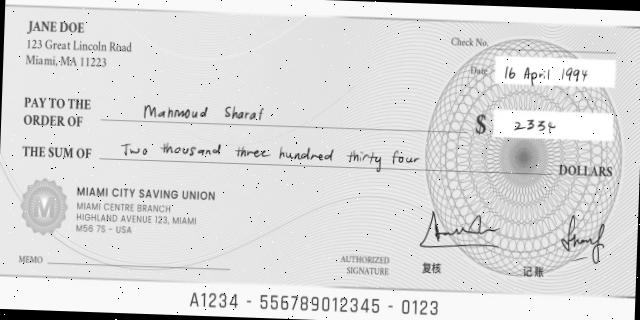 JANE DOE
123 Great Lincoln Road
Miami, MA 11223
Check No.
Date 16 April 1994
PAY TO THE
ORDER OF Mahmoud Sharaf
$ 2334
THE SUM OF Two thousand three hundred thirty four
DOLLARS
M
MIAMI CITY SAVING UNION
MIAMI CENTRE BRANCH
HIGHLAND AVENUE 123, MIAMI
M56 7S - USA
MEMO
AUTHORIZED
SIGNATURE
复核
记账
A1234 - 556789012345 - 0123